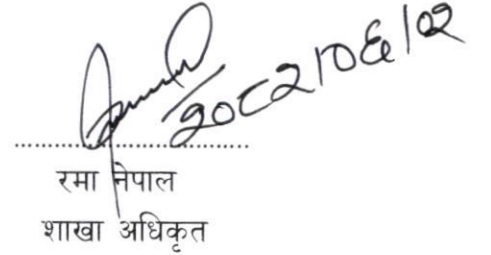 २०८२/०६/०२
रमा नेपाल
शाखा अधिकृत